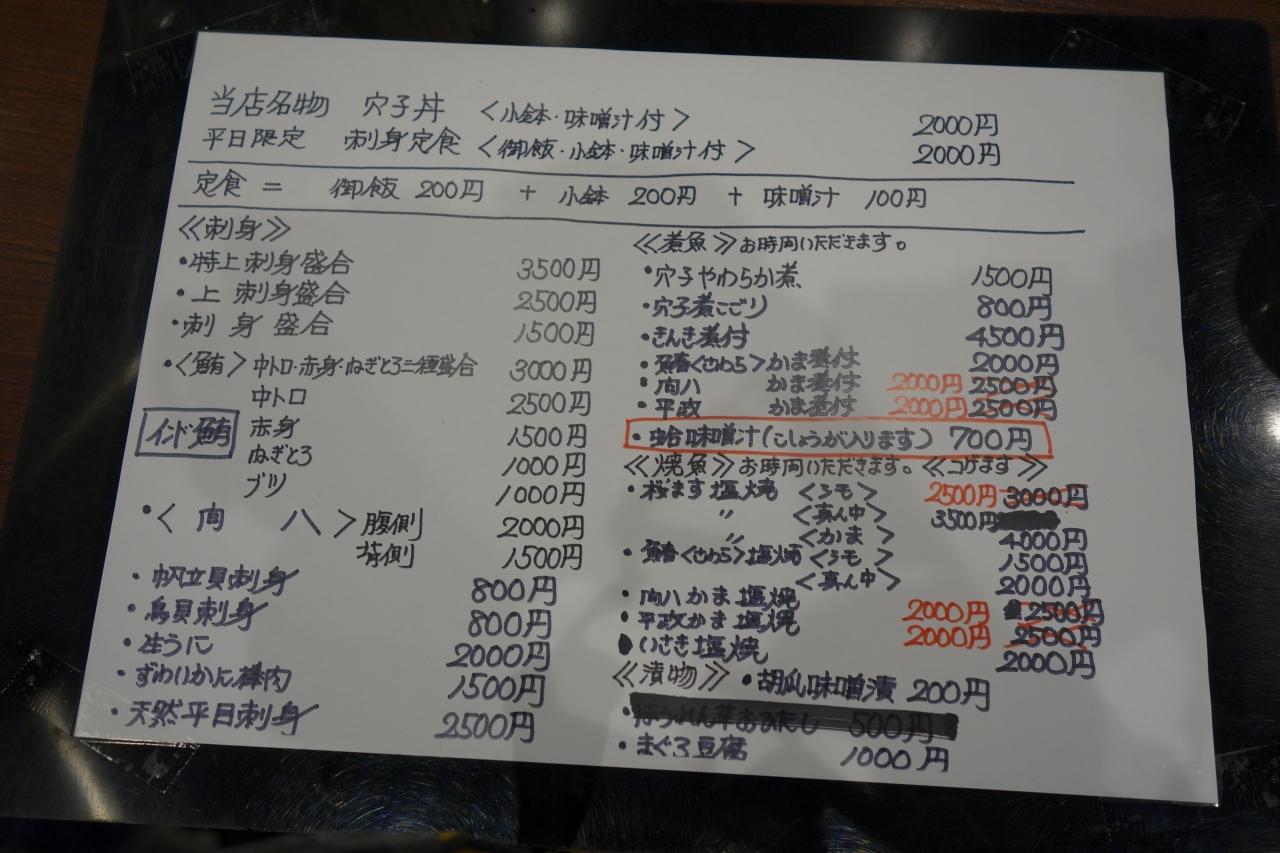 当店名物 穴子丼 <小鉢・味噌汁付> 2000円
平日限定 刺身定食 <御飯・小鉢・味噌汁付> 2000円
定食 = 御飯 200円 + 小鉢 200円 + 味噌汁 100円
≪刺身≫
・特上刺身盛合 3500円
・上 刺身盛合 2500円
・刺身盛合 1500円
・<鮪>中トロ・赤身・ねぎとろ三種盛合 3000円
中トロ 2500円
インド鮪
赤身 1500円
ねぎとろ 1000円
ブツ 1000円
・<向 八>腹側 2000円
背側 1500円
・帆立貝刺身 800円
・鳥貝刺身 800円
・生うに 2000円
・ずわいかに棒肉 1500円
・天然平目刺身 2500円
≪煮魚≫お時间いただきます。
・穴子やわらか煮 1500円
・穴子煮こごり 800円
・きんき煮付 4500円
・鰆<さわら>かま煮付 2000円
・向八 かま煮付 2000円 2500円
・平政 かま煮付 2000円 2500円
・蛤味噌汁(こしょうが入ります) 700円
≪焼魚≫お時间いただきます。≪コゲます≫
・桜ます塩焼 <シモ> 2500円 3000円
〃 <真ん中> 3500円
〃 <かま> 4000円
・鰆<さわら>塩焼 <シモ> 1500円
<真ん中> 2000円
・向八かま塩焼 2000円 2500円
・平政かま塩焼 2000円 2500円
・いさき塩焼 2000円
≪漬物≫ ・胡瓜味噌漬 200円
・ほうれん草おひたし 500円
・まぐろ豆腐 1000円